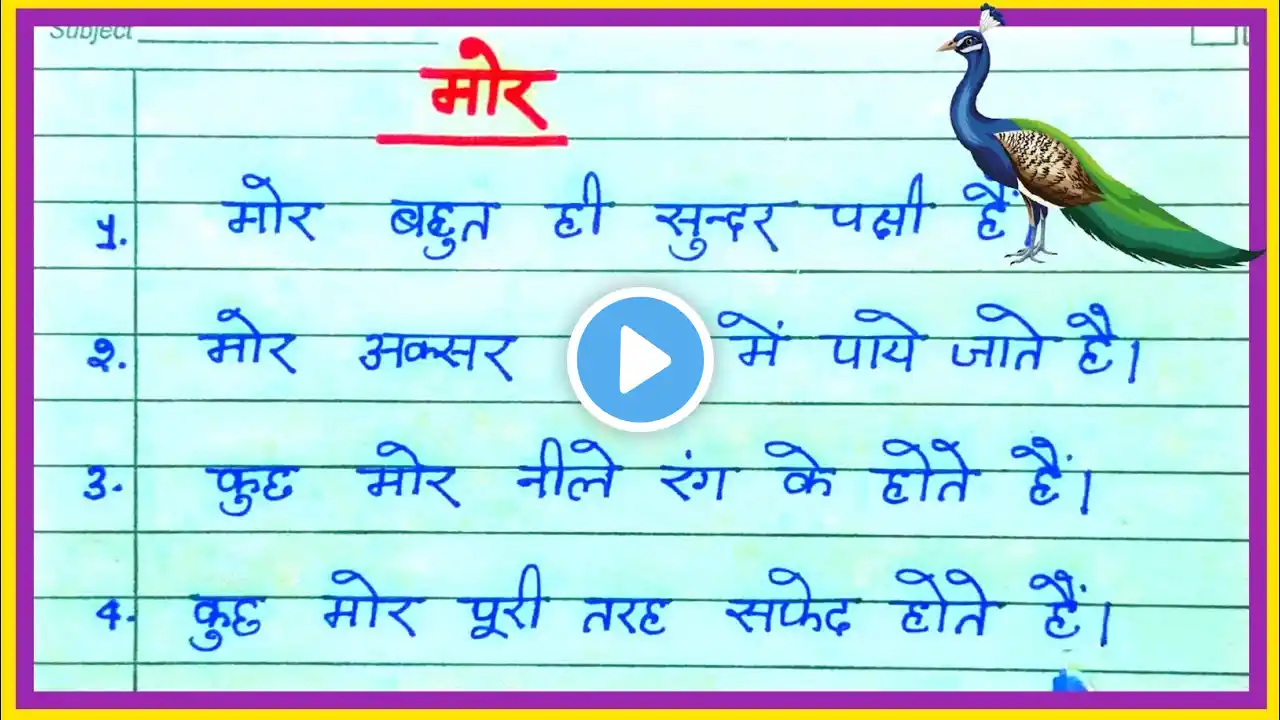 Subject
मोर
१. मोर बहुत ही सुन्दर पक्षी हैं
२. मोर अक्सर में पाये जाते है।
3. कुछ मोर नीले रंग के होते हैं।
4. कुछ मोर पूरी तरह सफेद होते हैं।